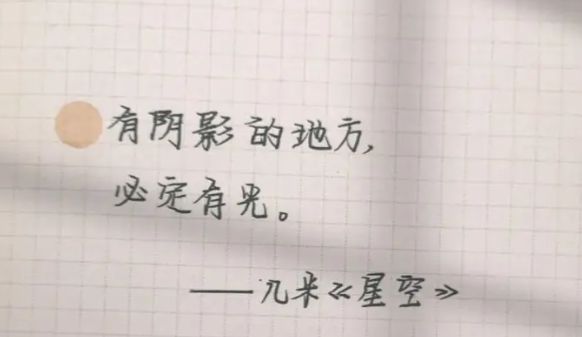 有阴影的地方,
必定有光。
——几米《星空》